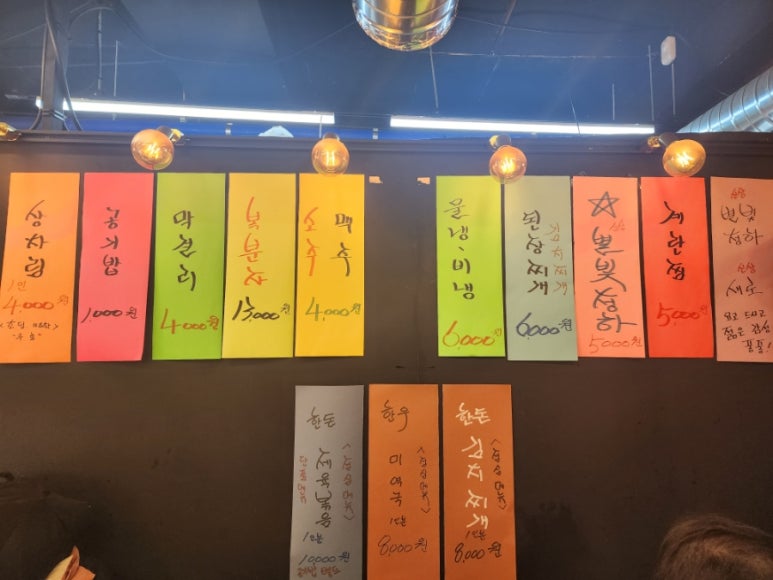 상차림
1인
4,000원
공기밥
1,000원
막걸리
4,000원
복분자
13,000원
맥주
소주
4,000원
물냉, 비냉
6,000원
된장찌개
김치찌개
6,000원
별빛청하
5,000원
계란찜
5,000원
별빛
청하
새로
한돈
제육볶음
<점심메뉴>
1인분
10,000원
한우
미역국
<점심메뉴>
1인분
8,000원
한돈
김치찌개
<점심메뉴>
1인분
8,000원